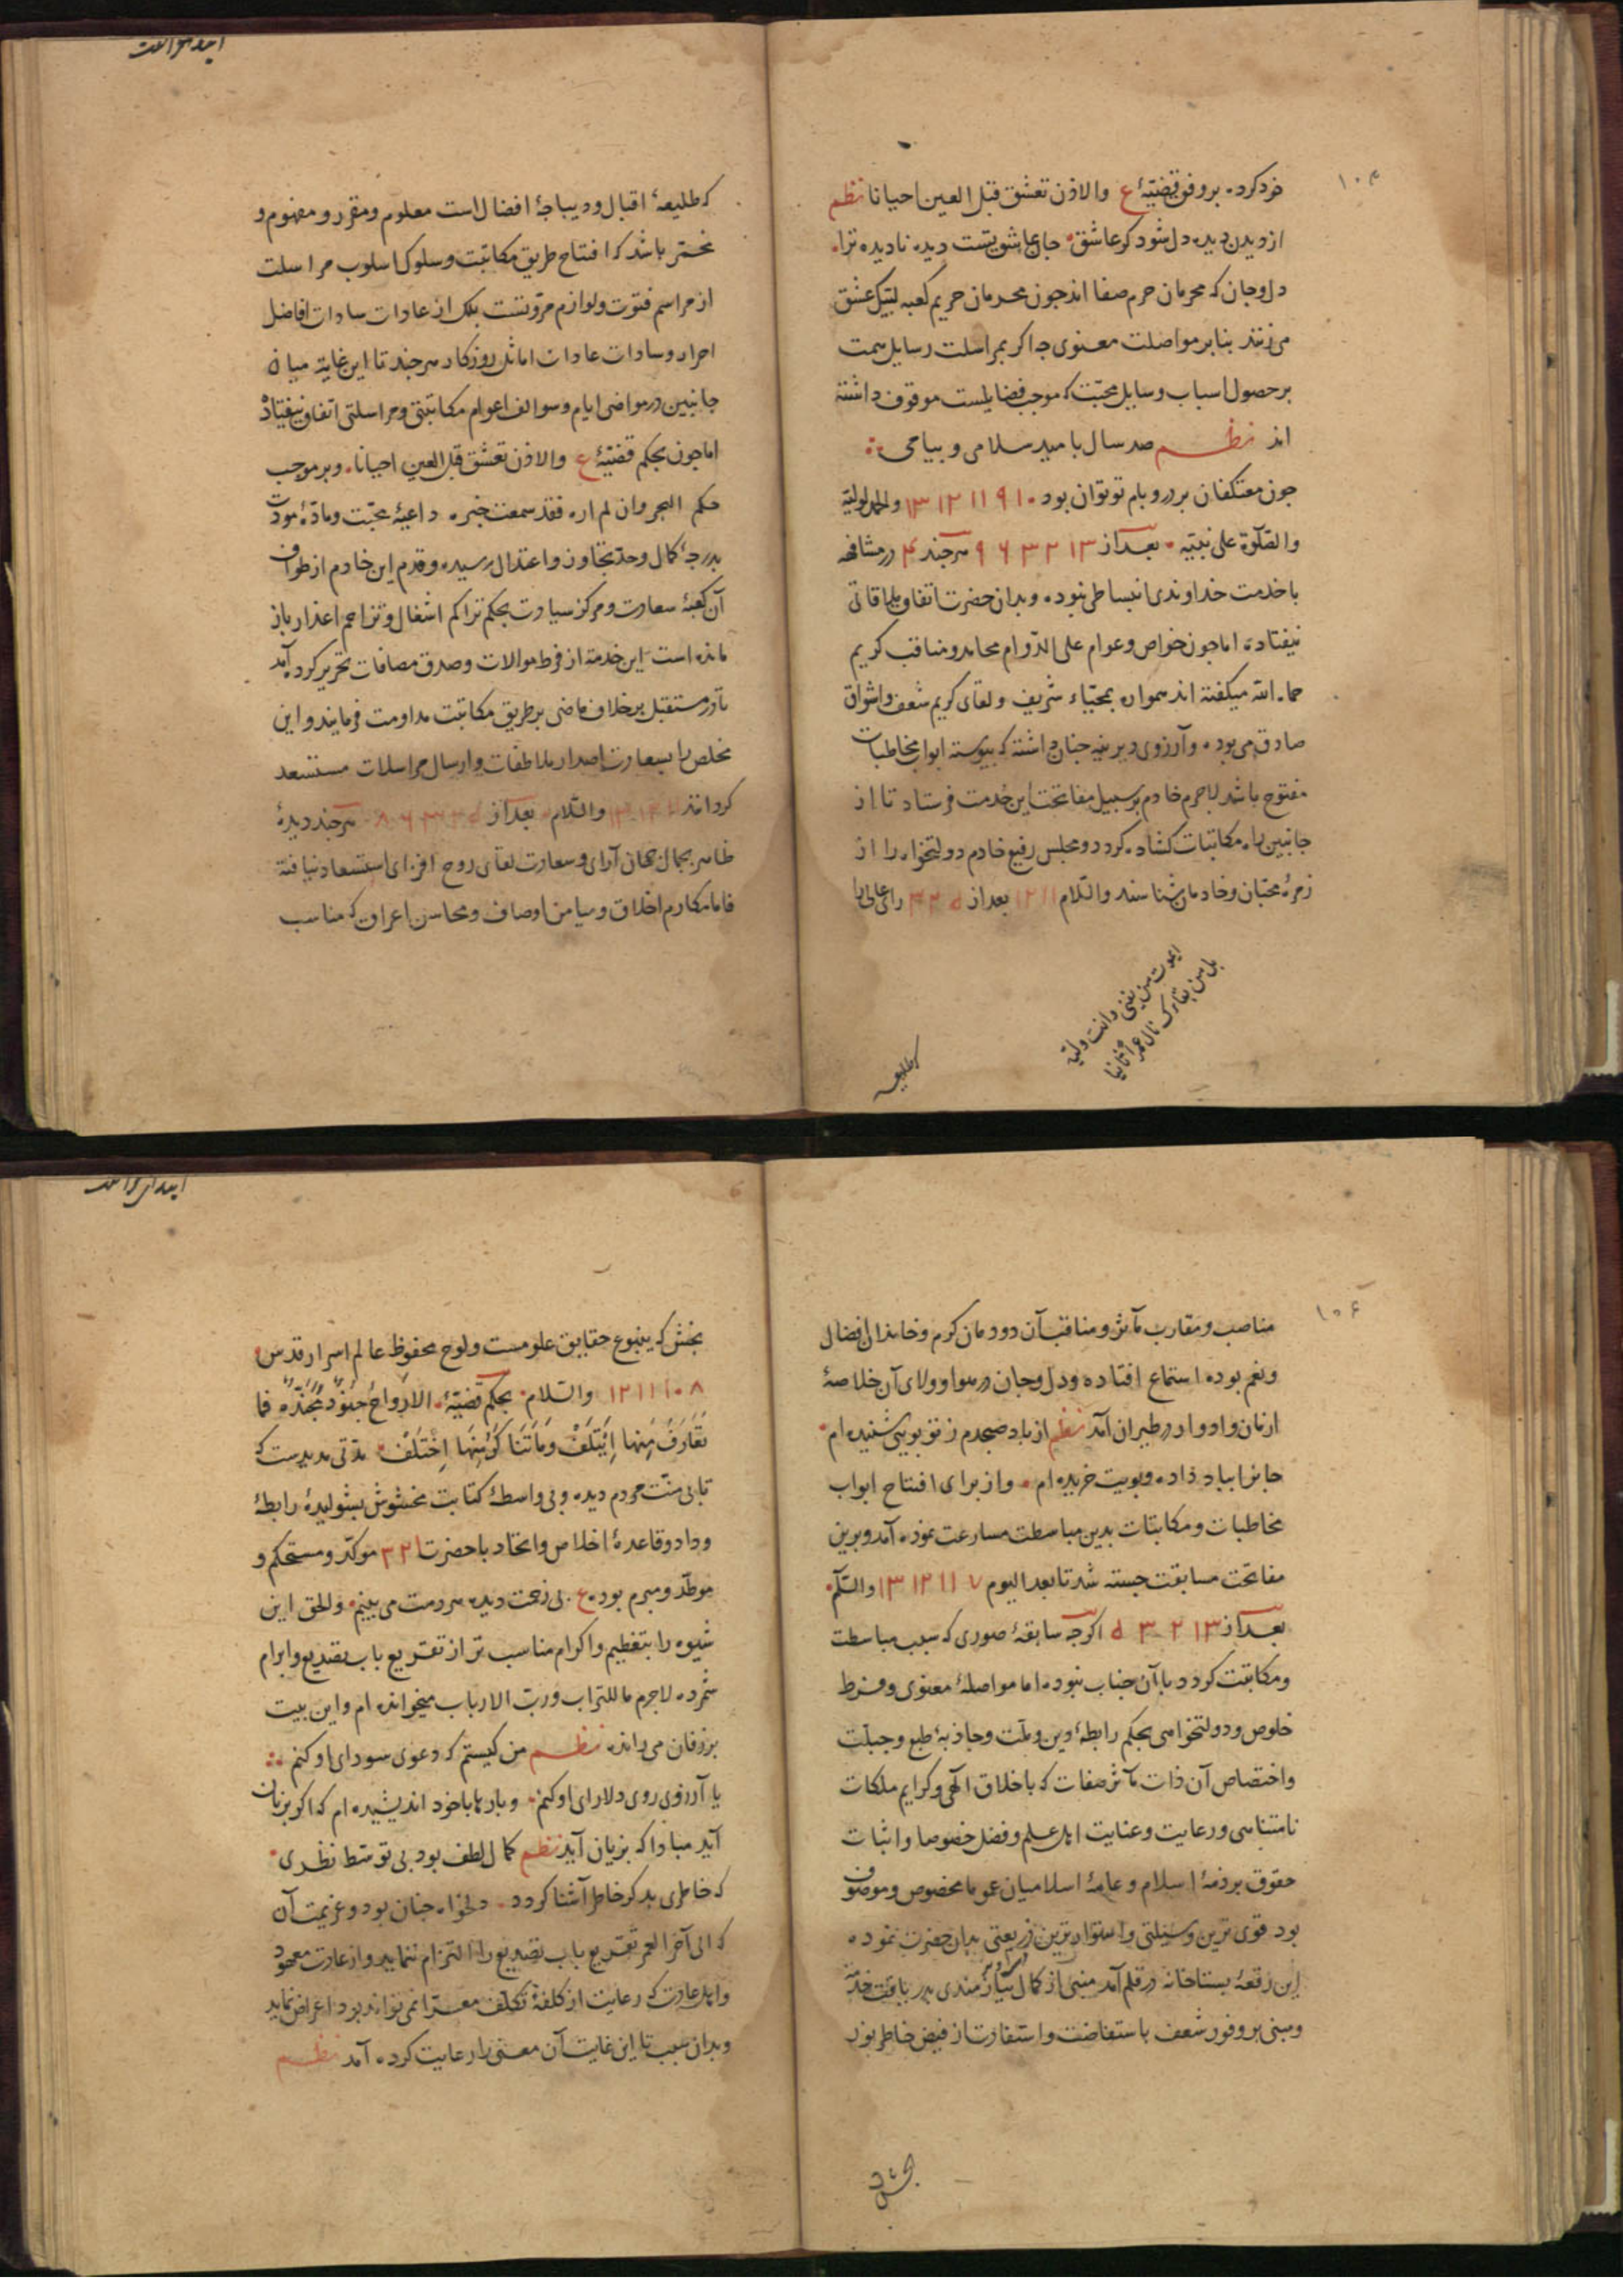 ۱۰۴
خود کرده بر وفق قضیّهٔ ع والاذن تعشق قبل العین احیانا نظم
از دیدن دیده دل شود کر عاشق جان عاشق تست دیده نادیده ترا
دل و جان که محرمان حرم صفا اند جون محرمان حریم کعبه لبیک عشق
می زنند بنابر مواصلت معنوی جه اکر بمراسلت رسایل سمت
بر حصول اسباب وسایل محبّت که موجب فضایلست موقوف داشته
اند نظم صد سال بامید سلامی و پیامی
جون معتکفان بر در و بام تو توان بود ۱۰ ۹ ۱۱ ۱۲ ۱۳ والحمد لولیّه
والصّلوة علی نبیّه بعد از ۱۳ ۲ ۳ ۶ ۹ هرجند ۴ در مشافهه
با خدمت خداوندی انبساطی نبوده و بدان حضرت اتفاق ملاقاتی
نیفتاده اما جون خواص و عوام علی الدّوام محامد و مناقب کریم
حماه الله میکفته اند همواره بمحیّاء شریف و لقای کریم شعف و اشواق
صادق می بوده و آرزوی دیرینه جنان داشته که پیوسته ابواب مخاطبات
مفتوح باشد لاجرم خادم بر سبیل مفاتحت این خدمت فرستاد تا از
جانبین راه مکاتبات کشاده کردد و مجلس رفیع خادم دولتخواه را از
زمرهٔ محبّان و خادمان شناسند والسّلام ۱۱ ۱۲ بعد از ۵ ۲ ۴ رای عالی را
ایموت من یفنی وانت ولیّه
بل من بقاءک نال عمرا ثانیا
که طلیعه
که طلیعهٔ اقبال و دیباجهٔ افضال است معلوم و مقرر و مفهوم و
مخمّر باشد که افتتاح طریق مکاتبت و سلوک اسلوب مراسلت
از مراسم فتوت و لوازم مروّتست بلک از عادات سادات افاضل
احرار و سادات عادات اماثل روزکار هرجند تا این غایة میان
جانبین در مواضی ایام و سوالف اعوام مکاتبتی و مراسلتی اتفاق نیفتاد
اما جون بحکم قضیّهٔ ع والاذن تعشق قبل العین احیانا و بر موجب
حکم البحر وان لم اره فقد سمعت خبره داعیهٔ محبّت و مادّهٔ مودّت
بدرجهٔ کمال و حدّ تجاوز و اعتدال رسیده و قدم این خادم از طواف
آن کعبهٔ سعادت و مرکز سیادت بحکم تراکم اشغال و تزاحم اعذار باز
مانده است این خدمة از فرط موالات و صدق مصافات تحریر کرده آمد
تا در مستقبل بر خلاف ماضی بر طریق مکاتبت مداومت فرمایند و این
مخلص را بسعادت اصدار ملاطفات و ارسال مراسلات مستسعد
کردانند ۱۲ ۱۳ والسّلام بعد از ۵ ۳ ۳ ۶ ۸ هرجند دیدهٔ
ظاهر بجمال جهان آرای و سعادت لقای روح افزای استسعاد نیافته
فاما مکارم اخلاق و میامن اوصاف و محاسن اعراق که مناسب
۱۰۶
مناصب و مقارب مآثر و مناقب آن دودمان کرم و خاندان افضال
و نعم بوده استماع افتاده و دل و جان در هوا و ولای آن خلاصهٔ
ازمان و ادوار در طیران آمد نظم از باد صبحدم ز تو بویی شنیده ام
جانرا بباد داده و بویت خریده ام و از برای افتتاح ابواب
مخاطبات و مکاتبات بدین مباسطت مسارعت نموده آمد و برین
مفاتحت مسابقت جسته شد تا بعد الیوم ۷ ۱۱ ۱۲ ۱۳ والسّلم
بعد از ۱۳ ۲ ۳ ۵ اکرجه سابقهٔ صوری که سبب مباسطت
و مکاتبت کردد با آن جناب نبوده اما مواصلهٔ معنوی و فرط
خلوص و دولتخواهی بحکم رابطهٔ دین و ملّت و جاذبهٔ طبع و جبلّت
و اختصاص آن ذات مآثر صفات که باخلاق الهی و کرایم ملکات
نامتناهی و رعایت و عنایت اهل علم و فضل خصوصا و اثبات
حقوق بر ذمهٔ اسلام و عامهٔ اسلامیان عموما مخصوص و موصوف
بود قوی ترین وسیلتی و استوارترین ذریعتی بدان حضرت نموده
این رقعهٔ بستاخانه در قلم آمد منبی از کمال نیازمندی بدریافت خدمة
و مبنی بر وفور شعف باستفاضت و استفادت از فیض خاطر نور
بخش که
بخش که ینبوع حقایق علومست و لوح محفوظ عالم اسرار قدس
۸ ۱۰ ۱۱ ۱۲ والسّلام بحکم قضیّهٔ الارواحُ جنودٌ مجنّدة فما
تعارفَ منها ایتلف وما تناکر منها اختلف مدّتی مدیدست که
تا بی منّت مردم دیده و بی واسطهٔ کتابت مخشوش بشولیدهٔ رابطهٔ
وداد و قاعدهٔ اخلاص و اتحاد با حضرت ۱ ۲ ۳ موکّد و مستحکم و
موطّد و مبرم بوده ع بی زحمت دیده هر دمت می بینم والحق این
شیوه را بتعظیم و اکرام مناسب تر از تقریع باب تصدیع و ابرام
شمرده لاجرم ما للتراب و ربّ الارباب میخوانده ام و این بیت
بر زفان می رانده نظم من کیستم که دعوی سودای او کنم
یا آرزوی روی دلارای او کنم و بارها با خود اندیشیده ام که اکر بزبان
آید مبادا که بزیان آید نظم کمال لطف بود بی توسّط نظری
که خاطری بدکر خاطر آشنا کردد دلخواه جنان بود و عزیمت آن
که الی آخر العمر تقریع باب تصدیع را التزام ننماید و از عادت معهود
و اهل عادت که رعایت از کلفهٔ تکلّف معرّا نمی تواند بود اعراض نماید
و بدان سبب تا این غایت آن معنی را رعایت کرده آمد نظم